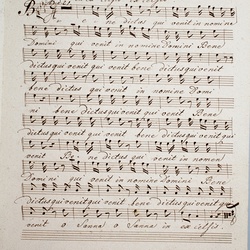 Be ne dictus qui venit in nomine
Domini qui venit in nomine Domini Bene
dictus qui venit qui venit bene dictus qui venit
bene dictus qui venit in nomine Domi
ni bene dictus qui venit Bene
dictus qui venit qui venit bene dictus qui venit qui
venit Be ne dictus qui venit in nomen
Domini qui venit in nomine Domini Bene
dictus qui venit qui venit bene dictus qui venit qui
venit o Sanna o Sanna in ex celsis.